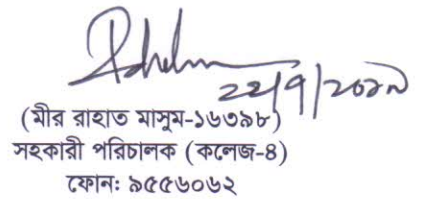 ২২/৭/২০১৯
(মীর রাহাত মাসুম-১৬৩৯৮)
সহকারী পরিচালক (কলেজ-৪)
ফোনঃ ৯৫৫৬০৬২